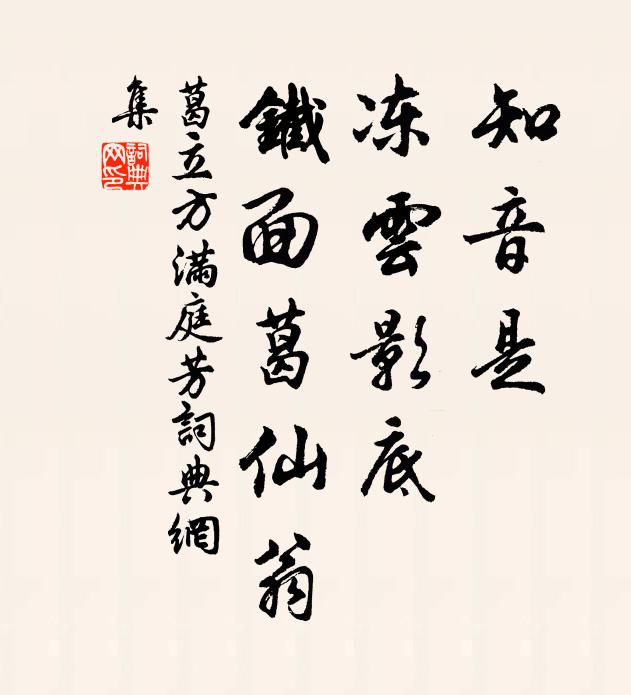 知音是
凍雲影底
鐵面葛仙翁
葛立方滿庭芳詞典網
集
詞典
网印